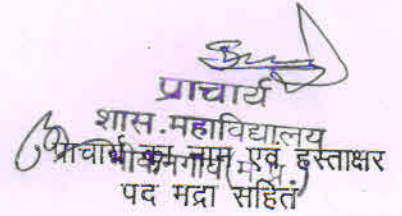 प्राचार्य
शास.महाविद्यालय
प्राचार्य का नाम एवं हस्ताक्षर
(म.प्र.)
पद मुद्रा सहित